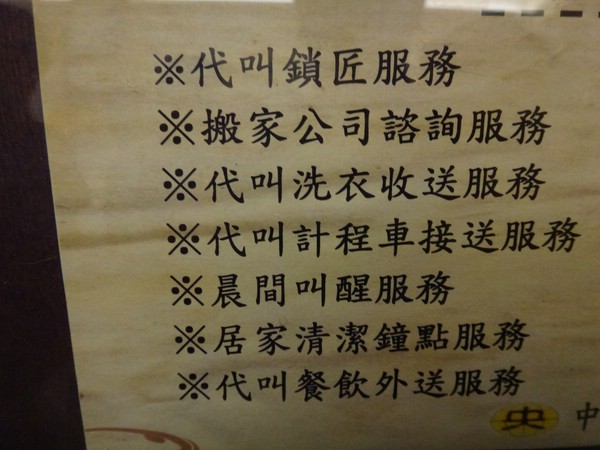 ※代叫鎖匠服務
※搬家公司諮詢服務
※代叫洗衣收送服務
※代叫計程車接送服務
※晨間叫醒服務
※居家清潔鐘點服務
※代叫餐飲外送服務
央 中